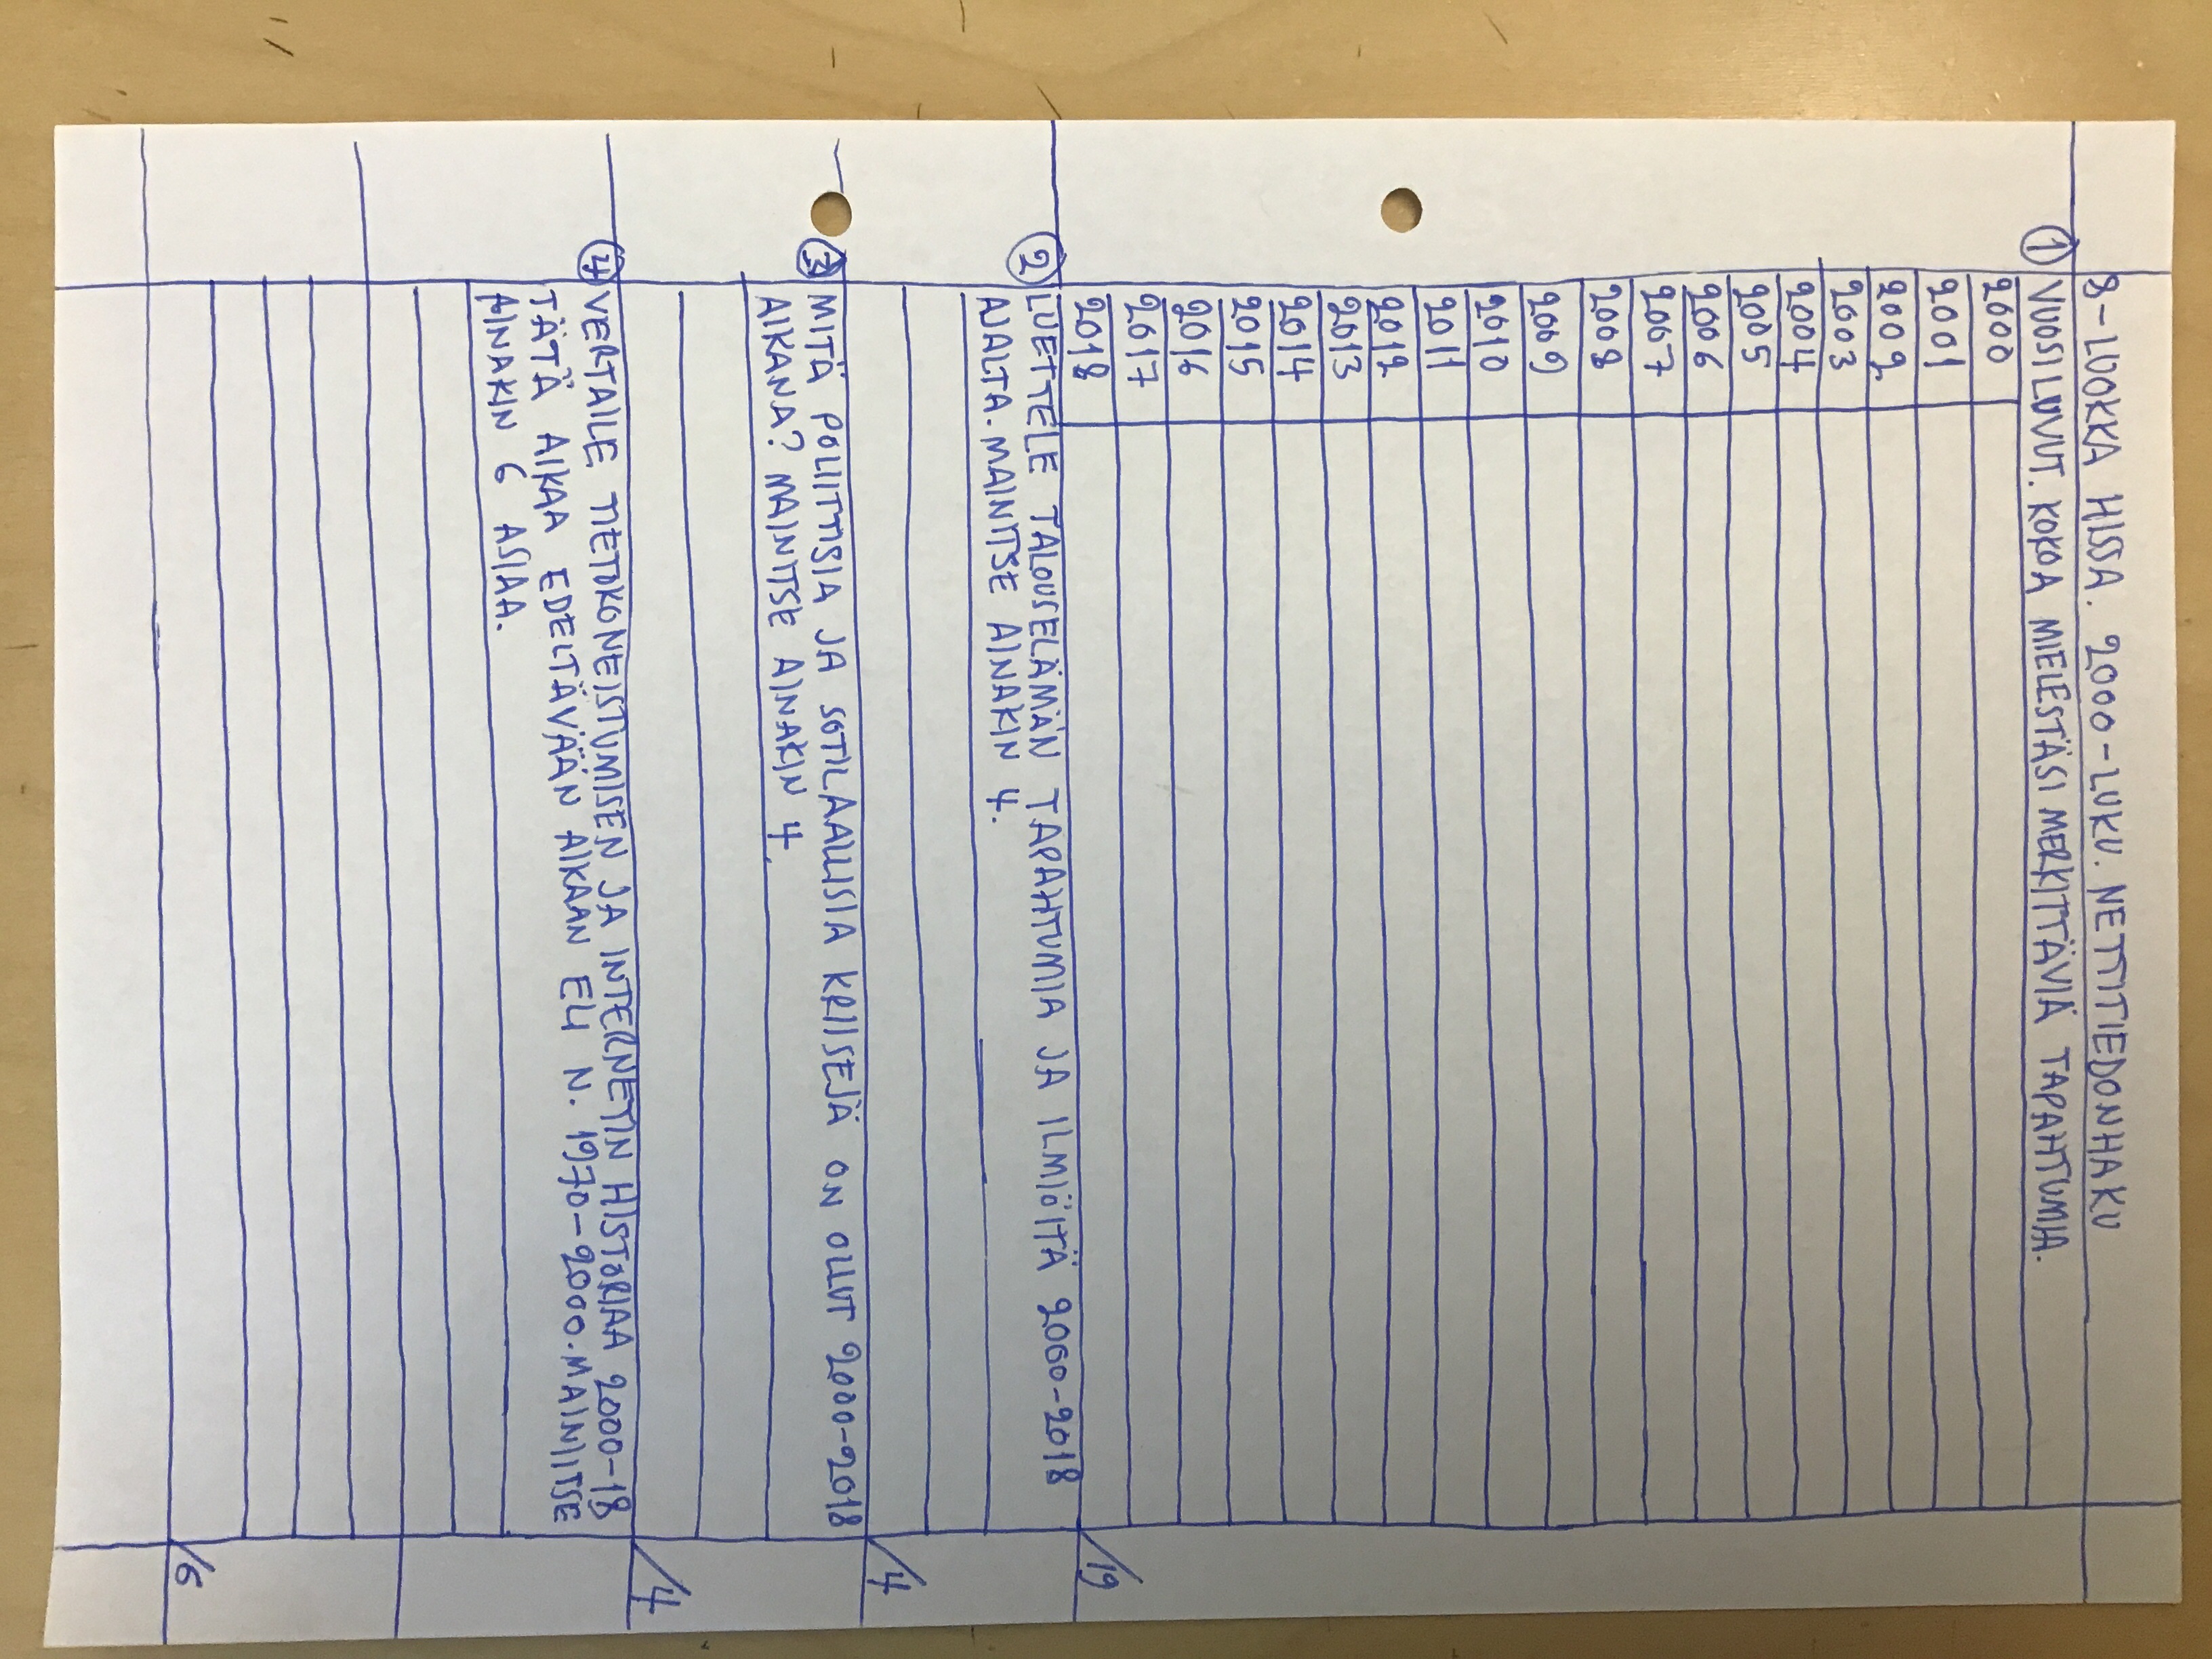 8-LUOKKA HISSA. 2000-LUKU. NETTITIEDONHAKU
① VUOSILUVUT. KOKOA MIELESTÄSI MERKITTÄVIÄ TAPAHTUMIA.
2000
2001
2002
2003
2004
2005
2006
2007
2008
2009
2010
2011
2012
2013
2014
2015
2016
2017
2018
/19
② LUETTELE TALOUSELÄMÄN TAPAHTUMIA JA ILMIÖITÄ 2000-2018
AJALTA. MAINITSE AINAKIN 4.
/4
③ MITÄ POLIITTISIA JA SOTILAALLISIA KRIISEJÄ ON OLLUT 2000-2018
AIKANA? MAINITSE AINAKIN 4.
/4
④ VERTAILE TIETOKONEISTUMISEN JA INTERNETIN HISTORIAA 2000-18
TÄTÄ AIKAA EDELTÄVÄÄN AIKAAN ELI N. 1970-2000. MAINITSE
AINAKIN 6 ASIAA.
/6